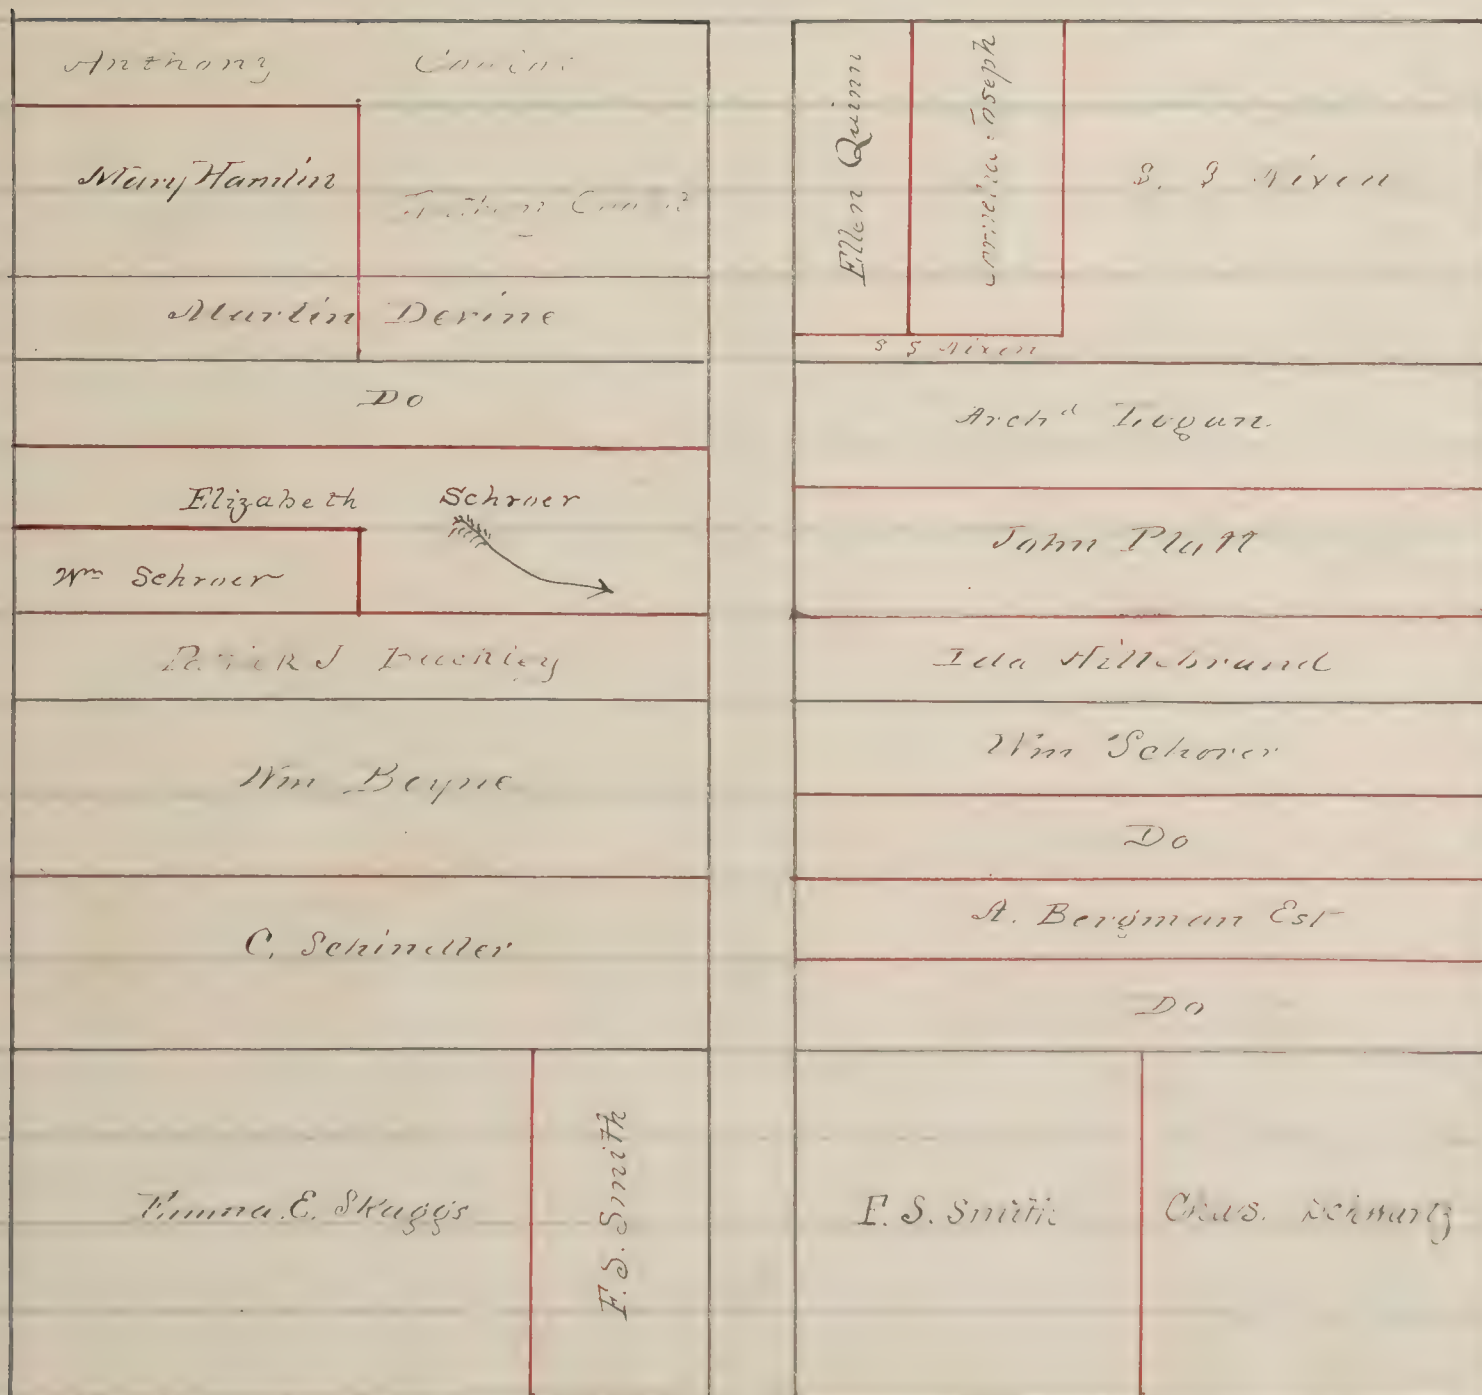 Anthony
Mary Hamlin
Martin Devine
Do
Elizabeth Schroer
Wm Schroer
J
Wm Beyne
C. Schindler
Emma. E. Skaggs
F. S. Smith
Ellen Quinn
Joseph
S. S Nixen
S S Nixen
Archd Logan.
John Platt
Ida Hillebrand
Wm Schorer
Do
A. Bergman Est
Do
F. S. Smith
Chas. Schwartz